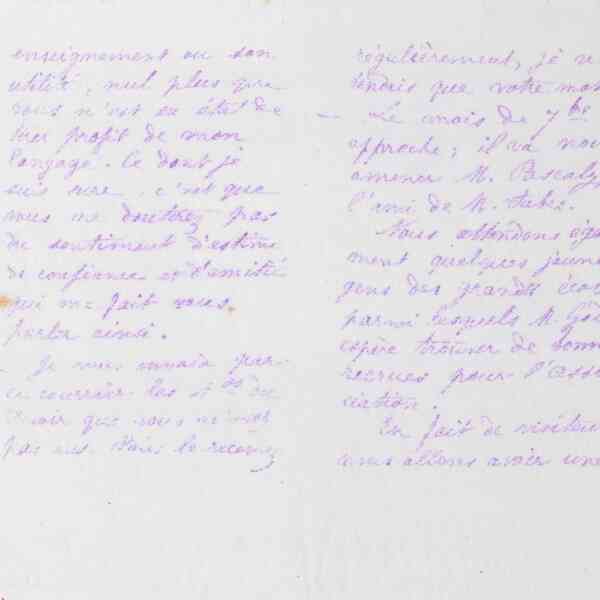 enseignement ou son
utilité, nul plus que
vous n'est en état de
tirer profit de mon
langage. Ce dont je
suis sure, c'est que
vous ne douterez pas
du sentiment d'estime
de confiance et d'amitié
qui me fait vous
parler ainsi.
Je vous envoie par
ce courrier les
que vous n'avez
pas eus.
régulièrement, je
que votre
Le mois de 7bre
approche; il va nous
amener M. Pascaly,
l'ami de M.
Nous attendons éga
ment quelques jeunes
gens des grandes éco
parmi lesquels M. God
espère trouver de bonn
recrues pour l'asso
ciation.
En fait de visiteu
nous allons avoir une